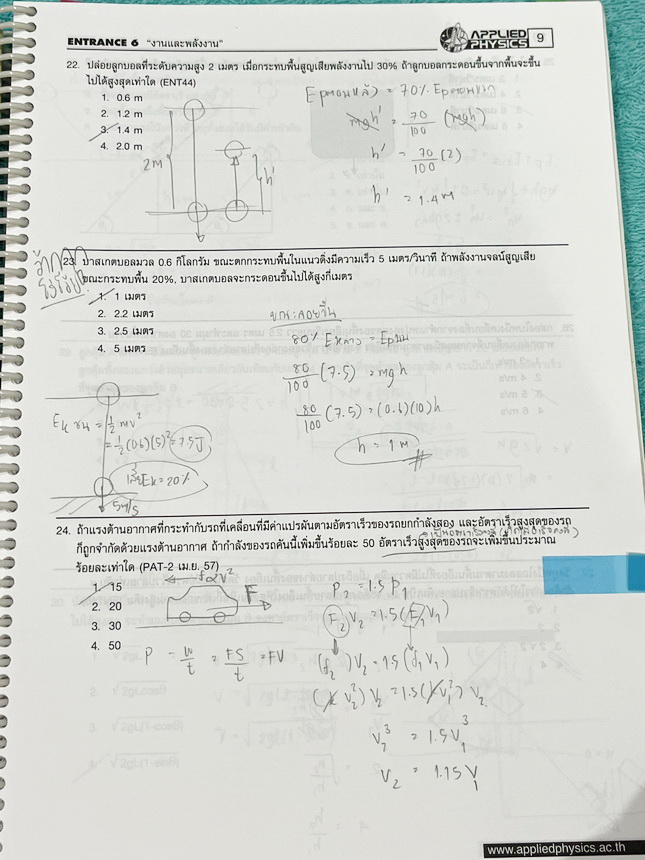 ENTRANCE 6 "งานและพลังงาน"
APPLIED PHYSICS 9
22. ปล่อยลูกบอลที่ระดับความสูง 2 เมตร เมื่อกระทบพื้นสูญเสียพลังงานไป 30% ถ้าลูกบอลกระดอนขึ้นจากพื้นจะขึ้น
ไปได้สูงสุดเท่าใด (ENT44)
1. 0.6 m
2. 1.2 m
3. 1.4 m
4. 2.0 m
2M
h'
= 70%
mgh' = 70/100 (mgh)
h' = 70/100 (2)
h' = 1.4 M
23. บาสเกตบอลมวล 0.6 กิโลกรัม ขณะตกกระทบพื้นในแนวดิ่งมีความเร็ว 5 เมตร/วินาที ถ้าพลังงานจลน์สูญเสีย
ขณะกระทบพื้น 20%, บาสเกตบอลจะกระดอนขึ้นไปได้สูงกี่เมตร
1. 1 เมตร
2. 2.2 เมตร
3. 2.5 เมตร
4. 5 เมตร
80/100 (7.5) = mgh
80/100 (7.5) = (0.6)(10)h
h = 1 m
Ek ชน = 1/2 mv²
= 1/2 (0.6)(5)² = 7.5 J
Ek = 20%
5m/s
24. ถ้าแรงต้านอากาศที่กระทำกับรถที่เคลื่อนที่มีค่าแปรผันตามอัตราเร็วของรถยกกำลังสอง และอัตราเร็วสูงสุดของรถ
ก็ถูกจำกัดด้วยแรงต้านอากาศ ถ้ากำลังของรถคันนี้เพิ่มขึ้นร้อยละ 50 อัตราเร็วสูงสุดของรถจะเพิ่มขึ้นประมาณ
ร้อยละเท่าใด (PAT-2 เม.ย. 57)
1. 15
2. 20
3. 30
4. 50
f∝v²
F
P = W/t = FS/t = FV
P₂ = 1.5 P₁
F₂ V₂ = 1.5 (F₁ V₁)
(f₂) V₂ = 1.5 (f₁ V₁)
(k V₂²) V₂ = 1.5 (k V₁²) V₂
V₂³ = 1.5 V₁³
V₂ = 1.15 V₁
www.appliedphysics.ac.th